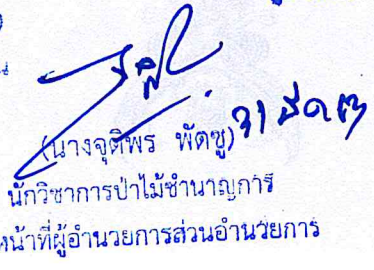 (นางจุติพร พัดชู) 31 มีค
นักวิชาการป่าไม้ชำนาญการ
หน้าที่ผู้อำนวยการส่วนอำนวยการ